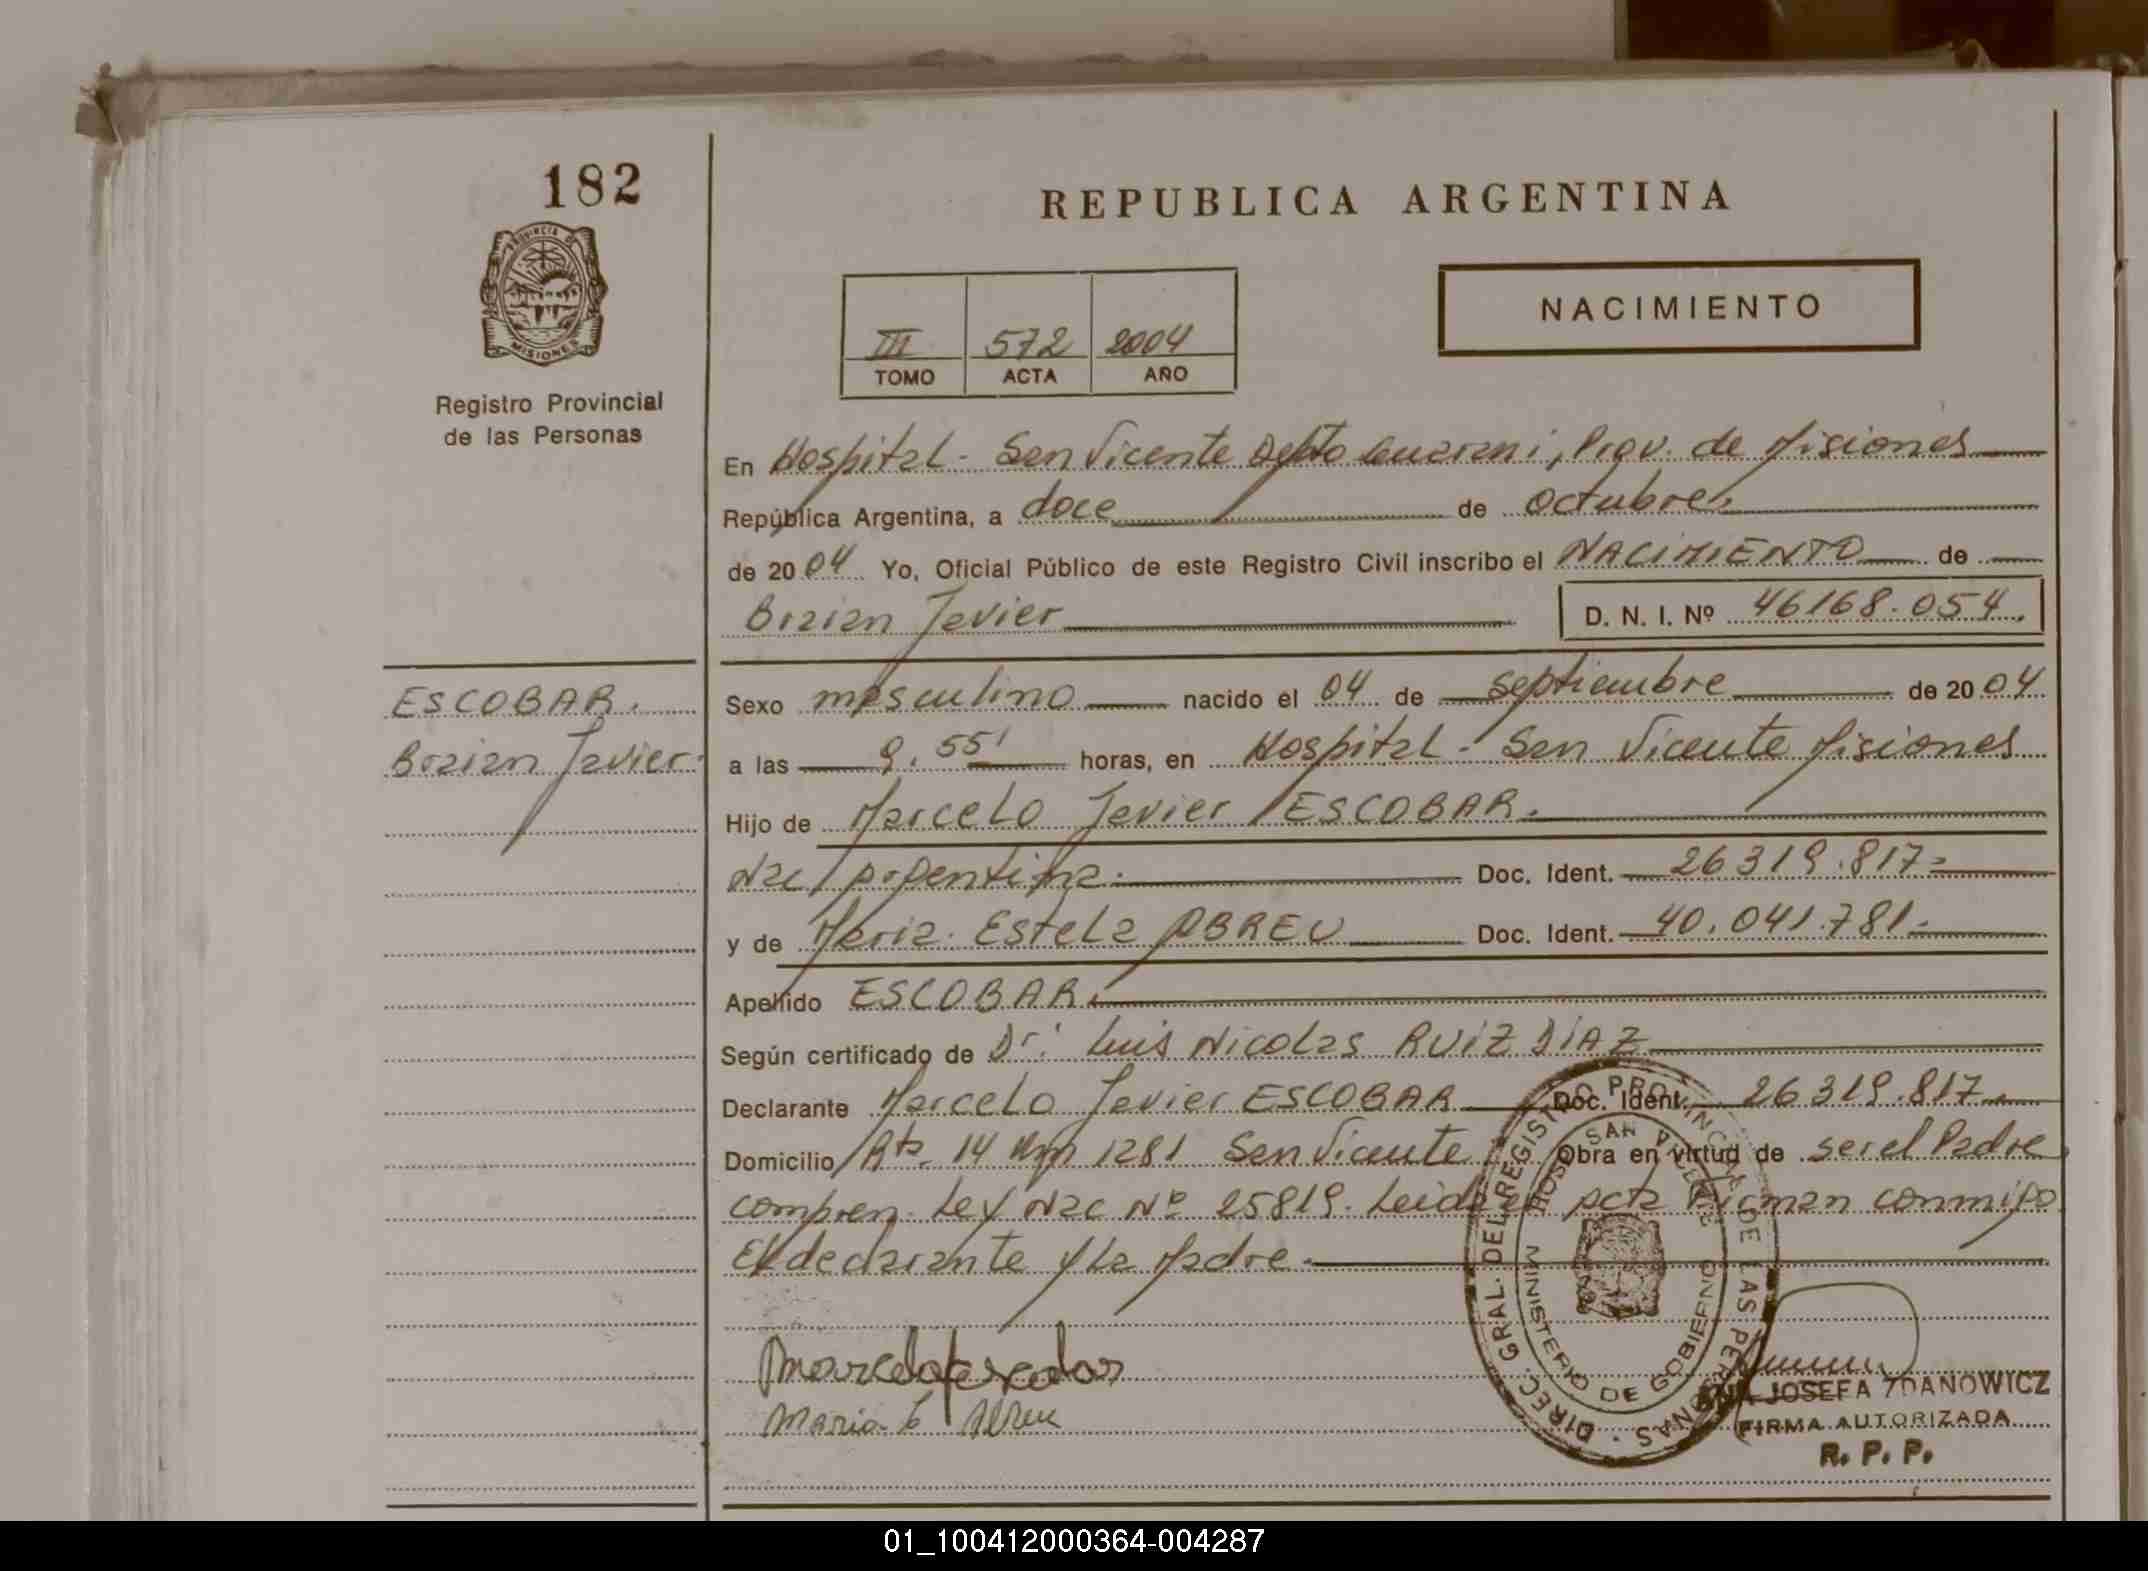 182
REPUBLICA ARGENTINA
PROVINCIA DE
MISIONES
Registro Provincial
de las Personas
NACIMIENTO
III 572 2004
TOMO ACTA AÑO
En Hospital - San Vicente Depto Guarani, Prov. de Misiones
República Argentina, a doce de octubre
de 2004 Yo, Oficial Público de este Registro Civil inscribo el NACIMIENTO de
Brian Javier D. N. I. Nº 46168.054
ESCOBAR.
Brian Javier
Sexo masculino nacido el 04 de septiembre de 2004
a las 9.55' horas, en Hospital - San Vicente Misiones
Hijo de Marcelo Javier ESCOBAR.
Nac Argentina. Doc. Ident. 26319.817
y de Maria Estela ABREU Doc. Ident. 40.041.781
Apellido ESCOBAR
Según certificado de Dr. Luis Nicolas RUIZ DIAZ
Declarante Marcelo Javier ESCOBAR Doc. Ident. 26319.817
Domicilio Rta. 14 Km 1281 San Vicente Obra en virtud de ser el Padre
compren. Ley Nac Nº 25819. Leida el acta Firman conmigo
El declarante y la Madre.
DIREC. GRAL. DEL REGISTRO PROVINCIAL DE LAS PERSONAS
HOSP. SAN VICENTE
MINISTERIO DE GOBIERNO
Maria E Abreu
JOSEFA ZDANOWICZ
FIRMA AUTORIZADA
R. P. P.
01_100412000364-004287